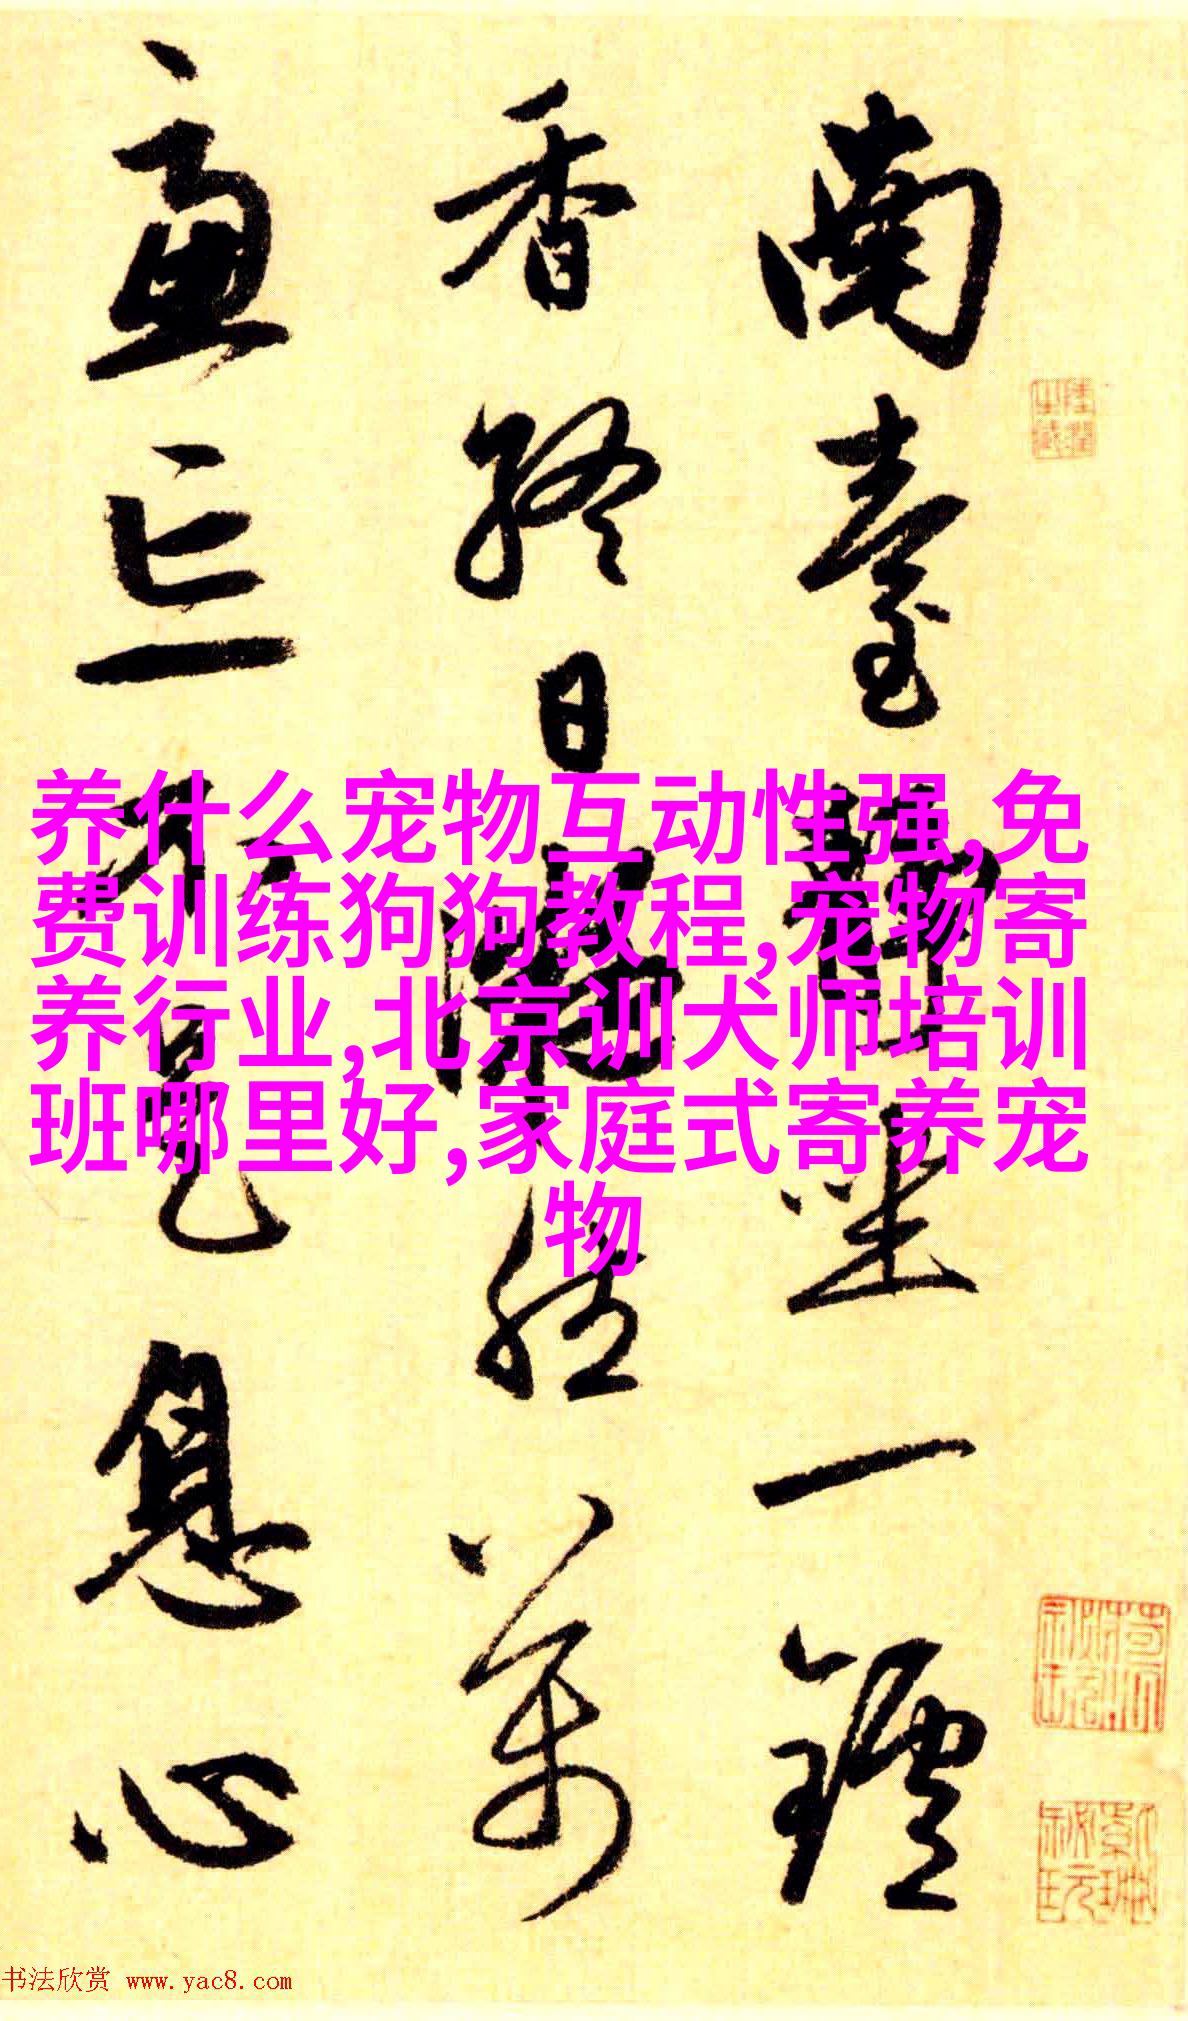 南臺靜坐一鑪
香終日凝然萬
慮亡不是息心
养什么宠物互动性强,免
费训练狗狗教程,宠物寄
养行业,北京训犬师培训
班哪里好,家庭式寄养宠
物
书法欣赏 www.yac8.com